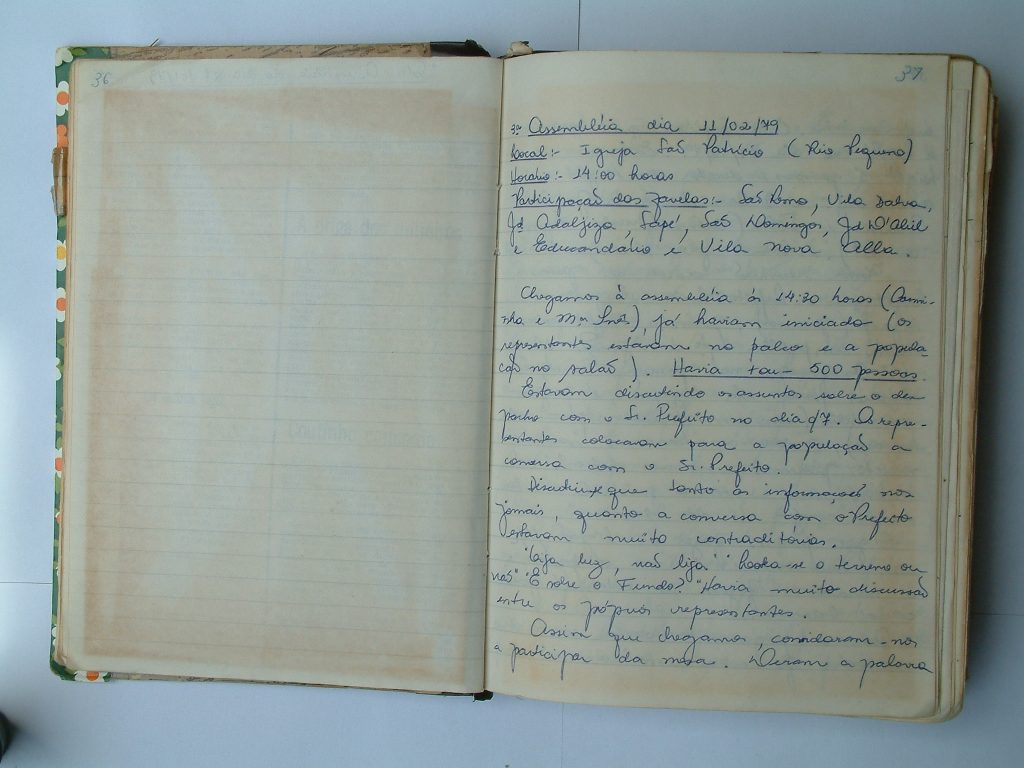 36
37
3ª Assembléia dia 11/02/79
Local:- Igreja São Patrício (Rio Pequeno)
Horário:- 14:00 horas
Participação das favelas:- São Remo, Vila Dalva,
Jd Adalgiza, Sapé, São Domingos, Jd D'Abril
e Educandário e Vila nova Alba.
Chegamos à assembléia ás 14:30 horas (Carmi-
nha e Mª Inês), já haviam iniciado (os
representantes estavam no palco e a popula-
ção no salão). Havia 500 pessoas.
Estavam discutindo os assuntos sobre o des
pacho com o Sr. Prefeito no dia 07. Os repre-
sentantes colocavam para a população a
conversa com o Sr. Prefeito.
Discutiu-se que tanto as informações nos
jornais, quanto a conversa com o Prefeito
estavam muito contraditórias.
"Liga luz, não liga" "Loca-se o terreno ou
não" "E sobre o Fundo?" Havia muito discussão
entre os própios representantes.
Assim que chegamos, convidaram-nos
a participar da mesa. Deram a palavra